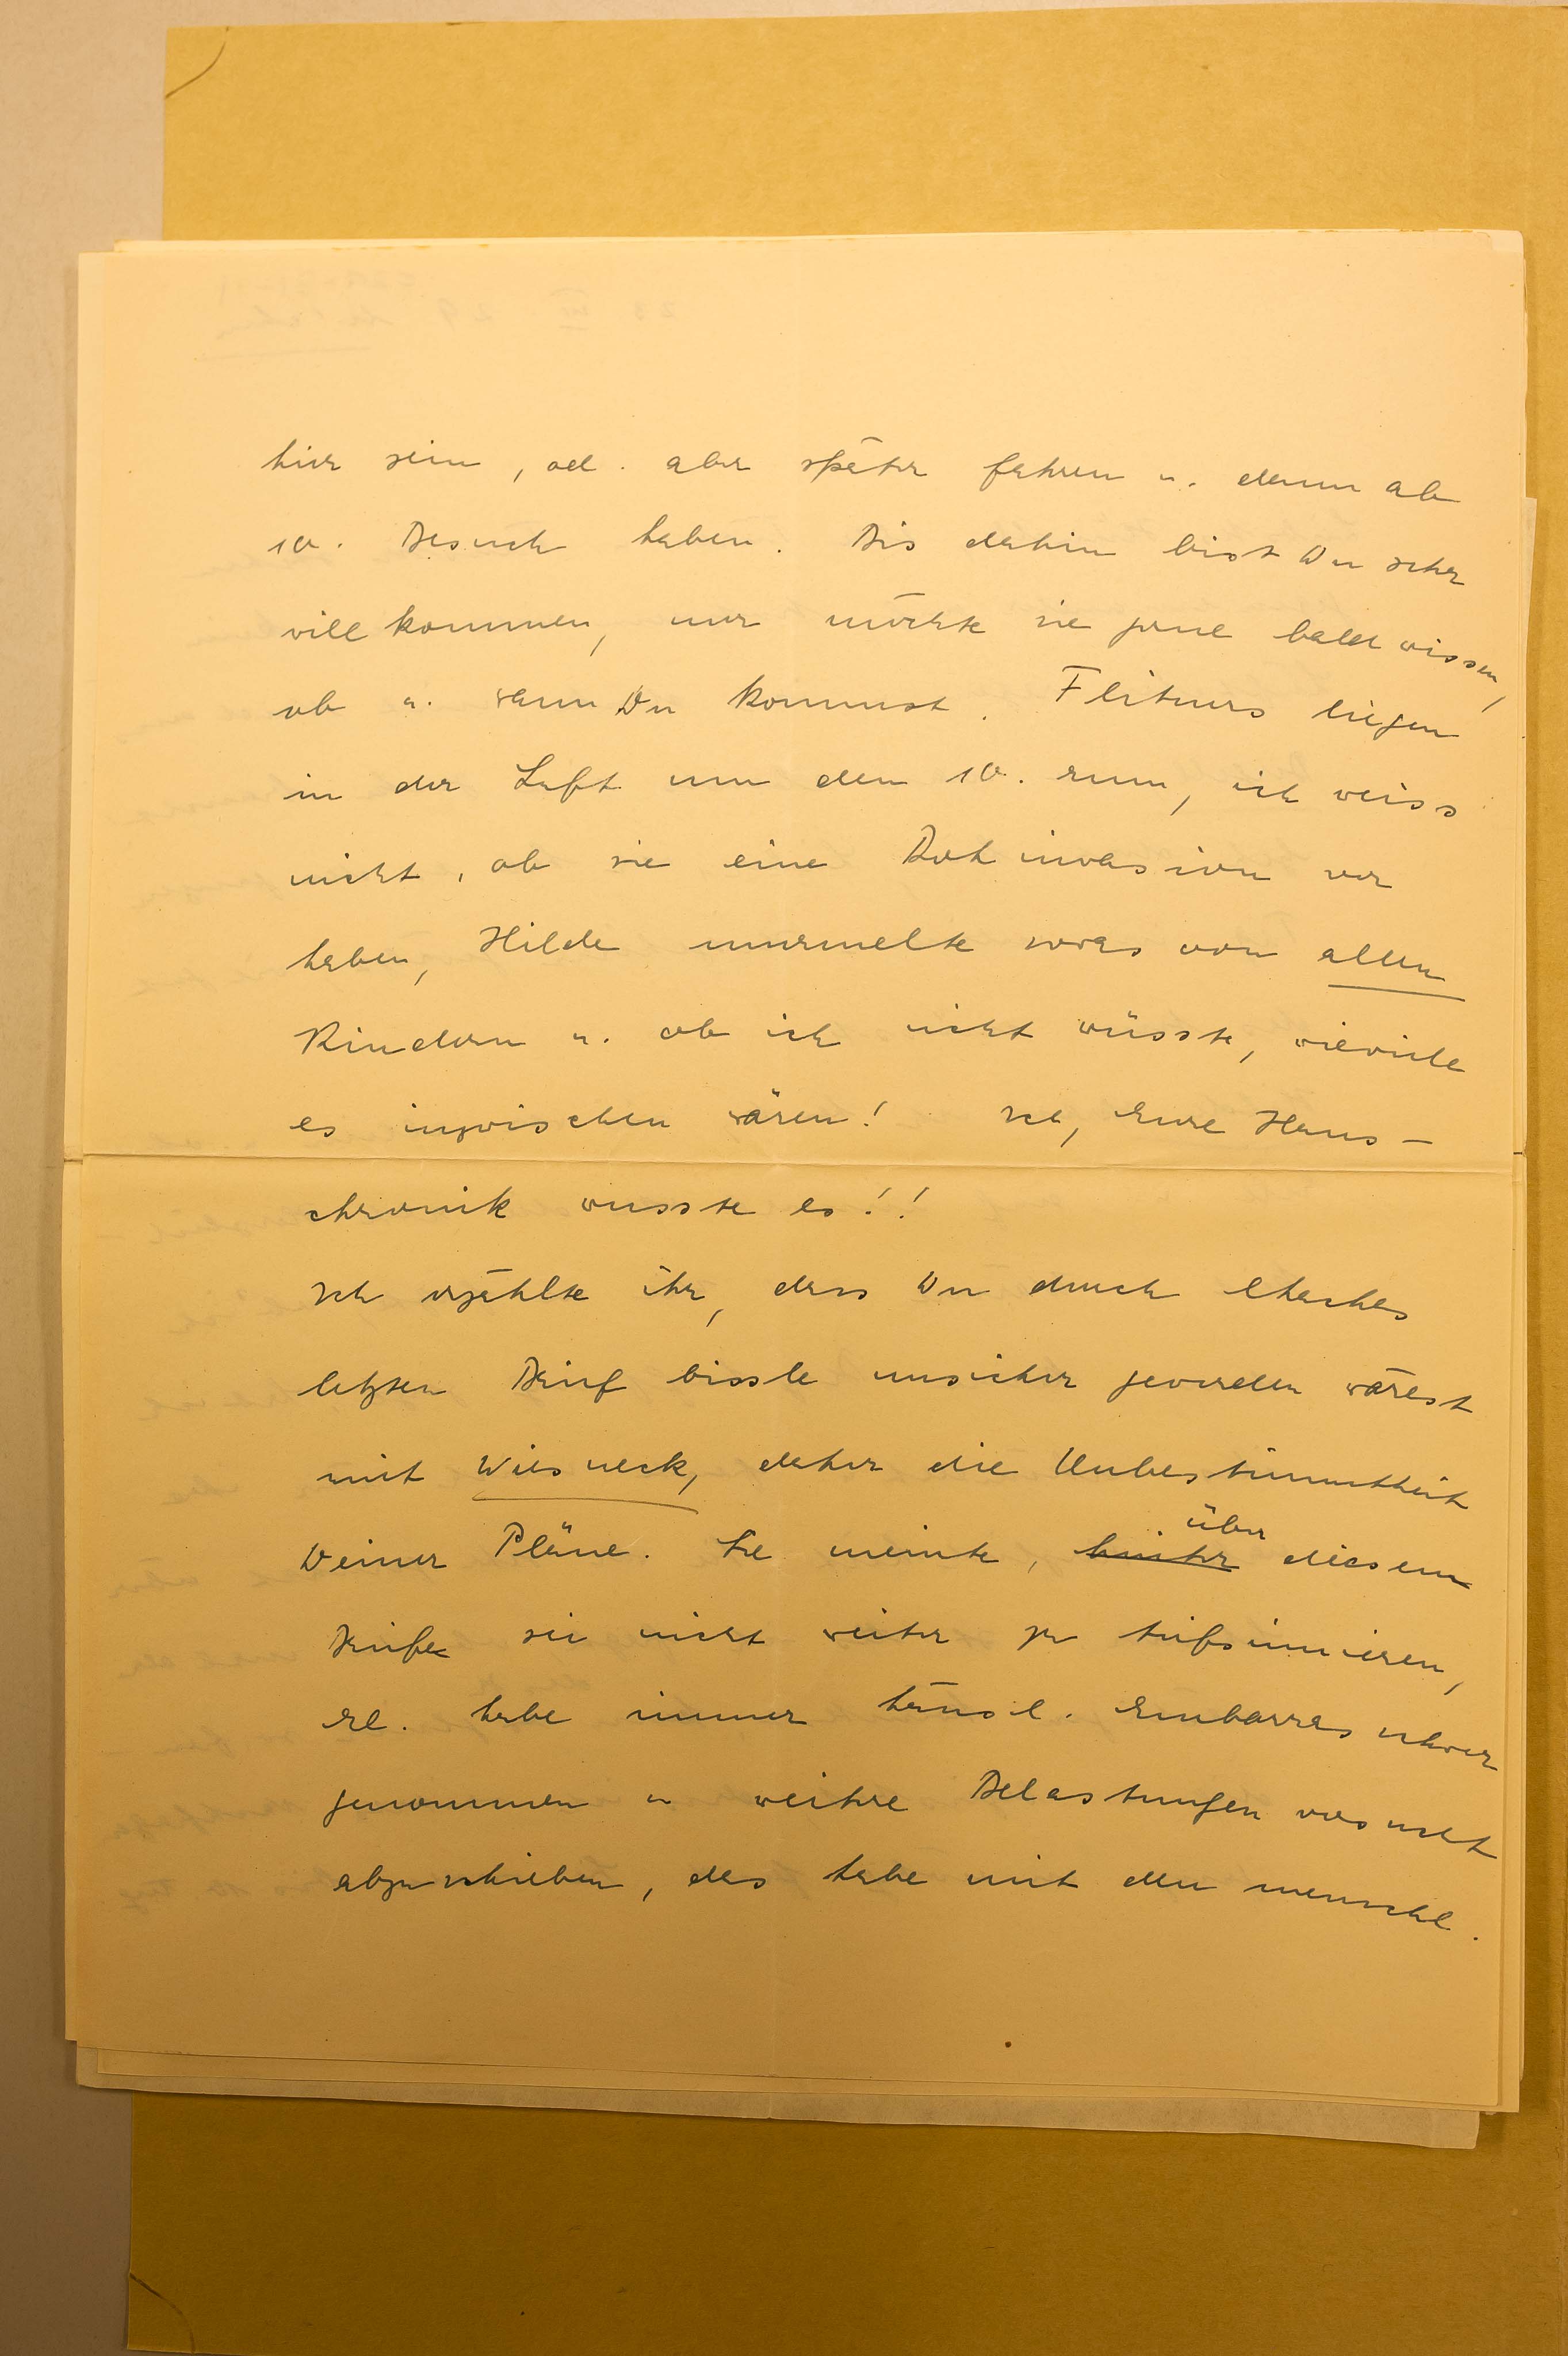 hier sein, od. aber später fahren u. dann ab
10. Besuch haben. Bis dahin bist Du sehr
willkommen, nur möchte sie gerne bald wissen,
ob u. wann Du kommst. Flitners liegen
in der Luft um den 10. rum, ich weiss
nicht, ob sie eine invasion vor
haben, Hilde murmelte sowas von allen
Kindern u. ob ich nicht wüsste, wieviele
es inzwischen wären! Ich, Eure Haus-
chronik wusste es!!
Ich erzählte ihr, dass Du durch
letzten Brief bissle unsicher geworden wärest
mit Wiesneck, daher die Unbestimmtheit
Deiner Pläne. Sie meinte, hinter über diesem
Briefe sei nicht weiter zu tiefsinnieren,
El. habe immer häusl. Embarras schwer
genommen u weitere Belastungen versucht
abzuschieben, das habe mit den menschl.